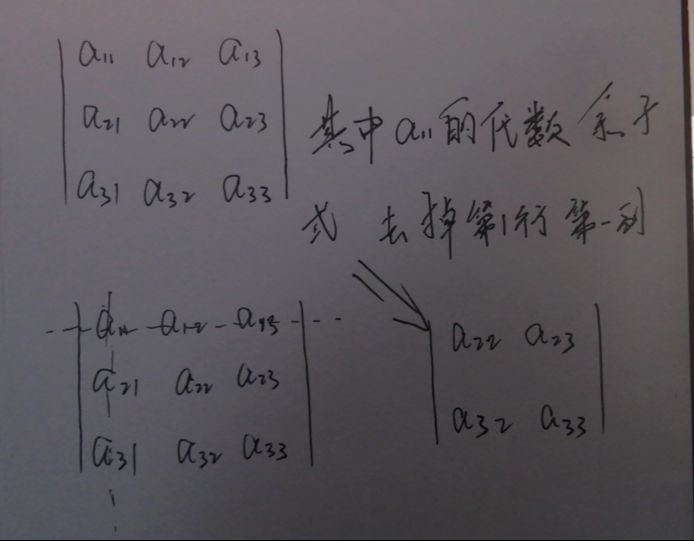 a11 a12 a13
a21 a22 a23
a31 a32 a33
其中a11的代数余子
式 去掉第1行第一列
a11 a12 a13
a21 a22 a23
a31 a32 a33
a22 a23
a32 a33